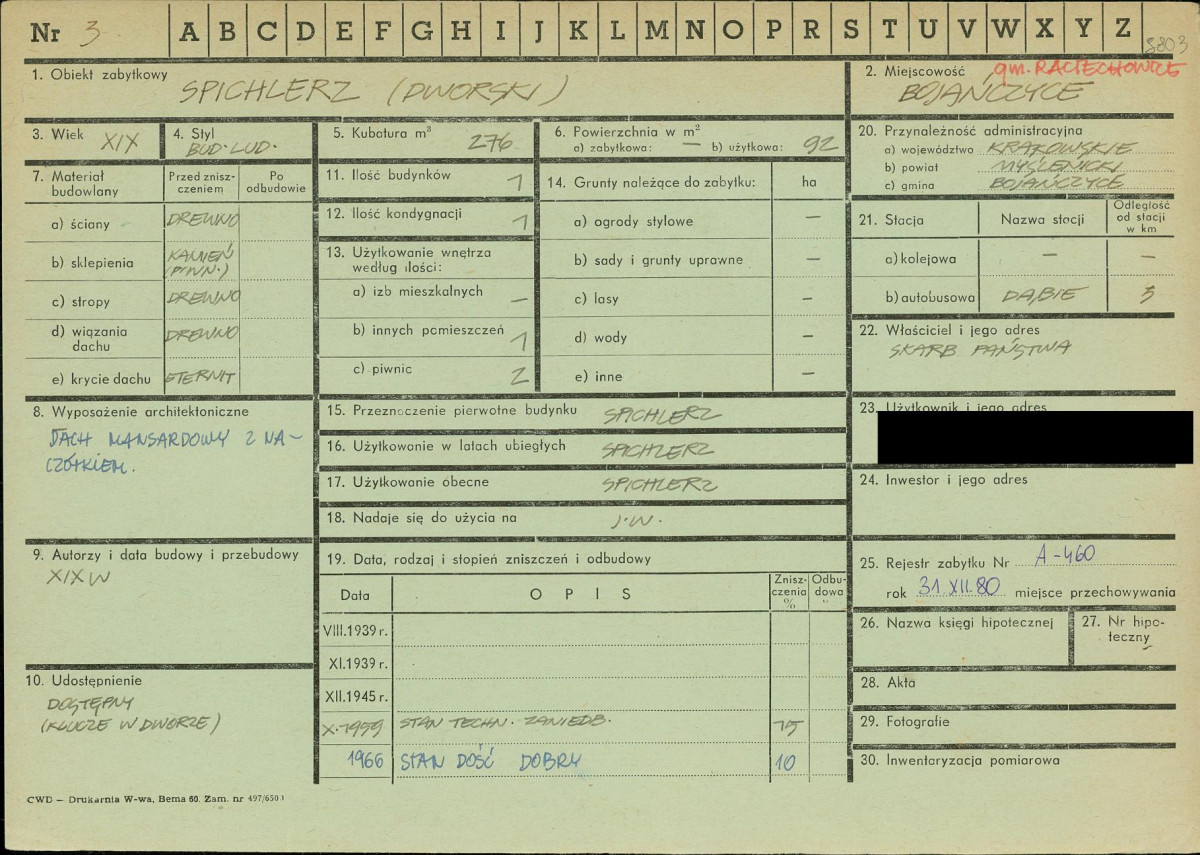 Nr 3 A B C D E F G H I J K L M N O P R S T U V W X Y Z 8803
1. Obiekt zabytkowy
SPICHLERZ (DWORSKI)
2. Miejscowość gm. RACIECHOWICE
BOJAŃCZYCE
3. Wiek XIX
4. Styl
BUD. LUD.
5. Kubatura m³
276
6. Powierzchnia w m²
a) zabytkowa: — b) użytkowa: 92
20. Przynależność administracyjna
a) województwo KRAKOWSKIE
b) powiat MYŚLENICKI
c) gmina BOJAŃCZYCE
7. Materiał budowlany
Przed znisz-
czeniem
Po
odbudowie
a) ściany DREWNO
b) sklepienia KAMIEŃ
(PIWN.)
c) stropy DREWNO
d) wiązania
dachu DREWNO
e) krycie dachu ETERNIT
11. Ilość budynków 1
12. Ilość kondygnacji 1
13. Użytkowanie wnętrza
według ilości:
a) izb mieszkalnych —
b) innych pomieszczeń 1
c) piwnic 2
14. Grunty należące do zabytku: ha
a) ogrody stylowe —
b) sady i grunty uprawne —
c) lasy —
d) wody —
e) inne —
21. Stacja Nazwa stacji
Odległość
od stacji
w km
a) kolejowa — —
b) autobusowa DĄBIE 3
22. Właściciel i jego adres
SKARB PAŃSTWA
8. Wyposażenie architektoniczne
DACH MANSARDOWY Z NA-
CZÓŁKIEM.
15. Przeznaczenie pierwotne budynku SPICHLERZ
16. Użytkowanie w latach ubiegłych SPICHLERZ
17. Użytkowanie obecne SPICHLERZ
18. Nadaje się do użycia na J.W.
23. Użytkownik i jego adres
24. Inwestor i jego adres
9. Autorzy i data budowy i przebudowy
XIX W
19. Data, rodzaj i stopień zniszczeń i odbudowy
Data OPIS
Znisz-
czenia
%
Odbu-
dowa
%
VIII.1939 r.
XI.1939 r.
XII.1945 r.
X.1959 STAN TECHN. ZANIEDB. 15
1966 STAN DOŚĆ DOBRY 10
25. Rejestr zabytku Nr A-460
rok 31.XII.80 miejsce przechowywania
26. Nazwa księgi hipotecznej
27. Nr hipo-
teczny
10. Udostępnienie
DOSTĘPNY
(KLUCZE W DWORZE)
28. Akta
29. Fotografie
30. Inwentaryzacja pomiarowa
CWD — Drukarnia W-wa, Bema 60. Zam. nr 497/650